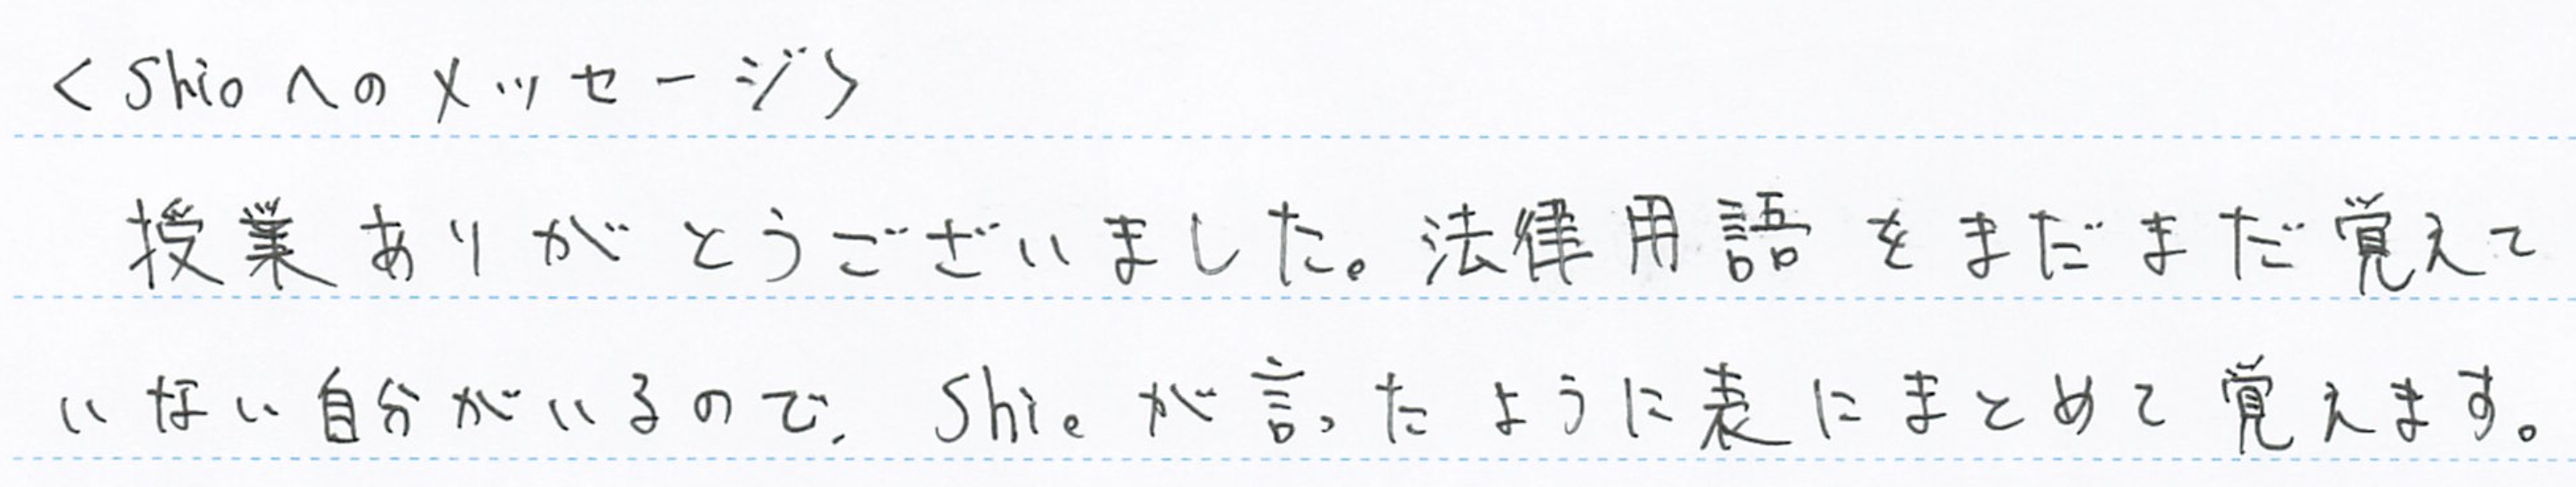 <Shioへのメッセージ>
授業ありがとうございました。法律用語をまだまだ覚えて
いない自分がいるので、Shioが言ったように表にまとめて覚えます。